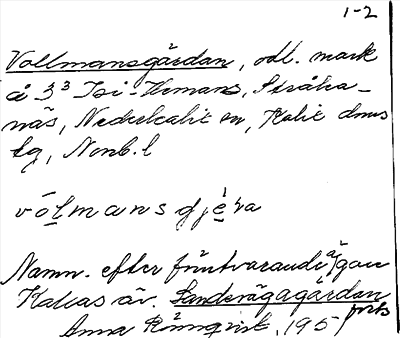 1-2
Vollmansgärdan, odl. mark
å 3³ Isi-Hemans, Stråka-
näs, Nederkalix sn, Kalix dmrs
tg, Nonb. l
vōlmansgjèra
Namn. efter förutvarande ägare
Kallas äv. Landsvägagärdan
Anna Rönnqvist, 195